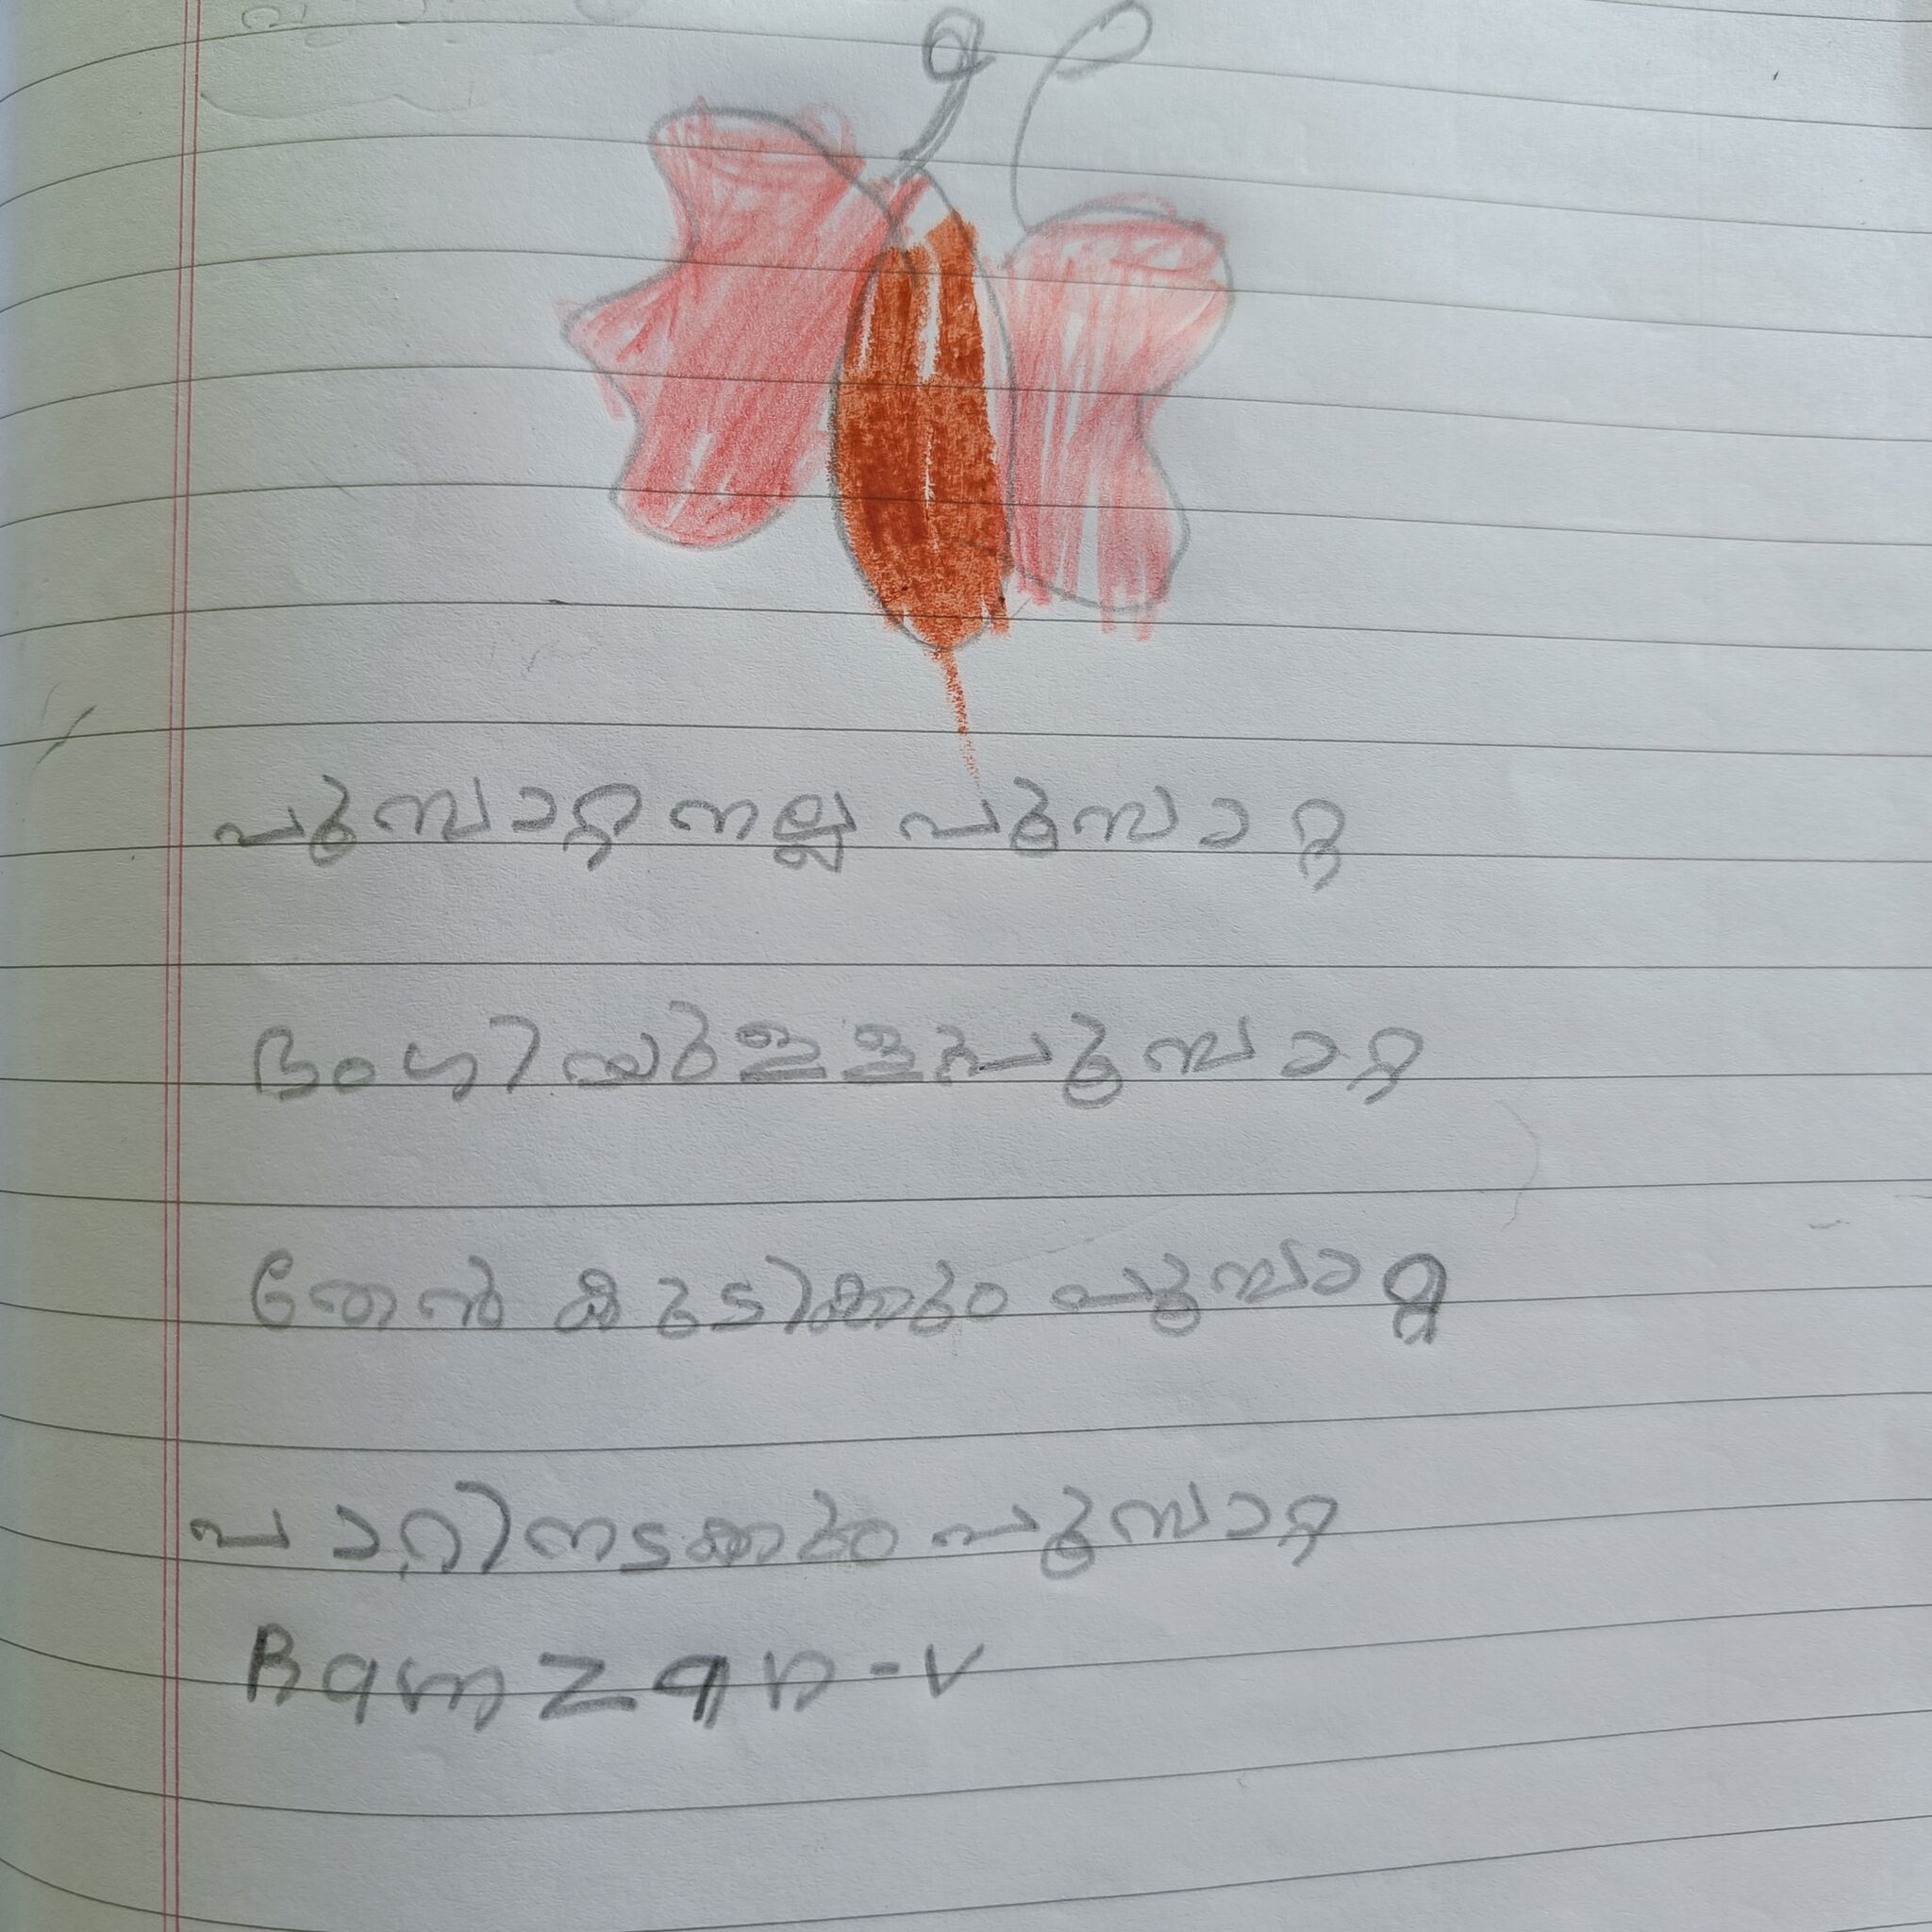 പൂമ്പാറ്റ നല്ല പൂമ്പാറ്റ
ഭംഗിയുള്ള പൂമ്പാറ്റ
തേൻ കുടിക്കും പൂമ്പാറ്റ
പാറിനടക്കും പൂമ്പാറ്റ
Ramzan-V